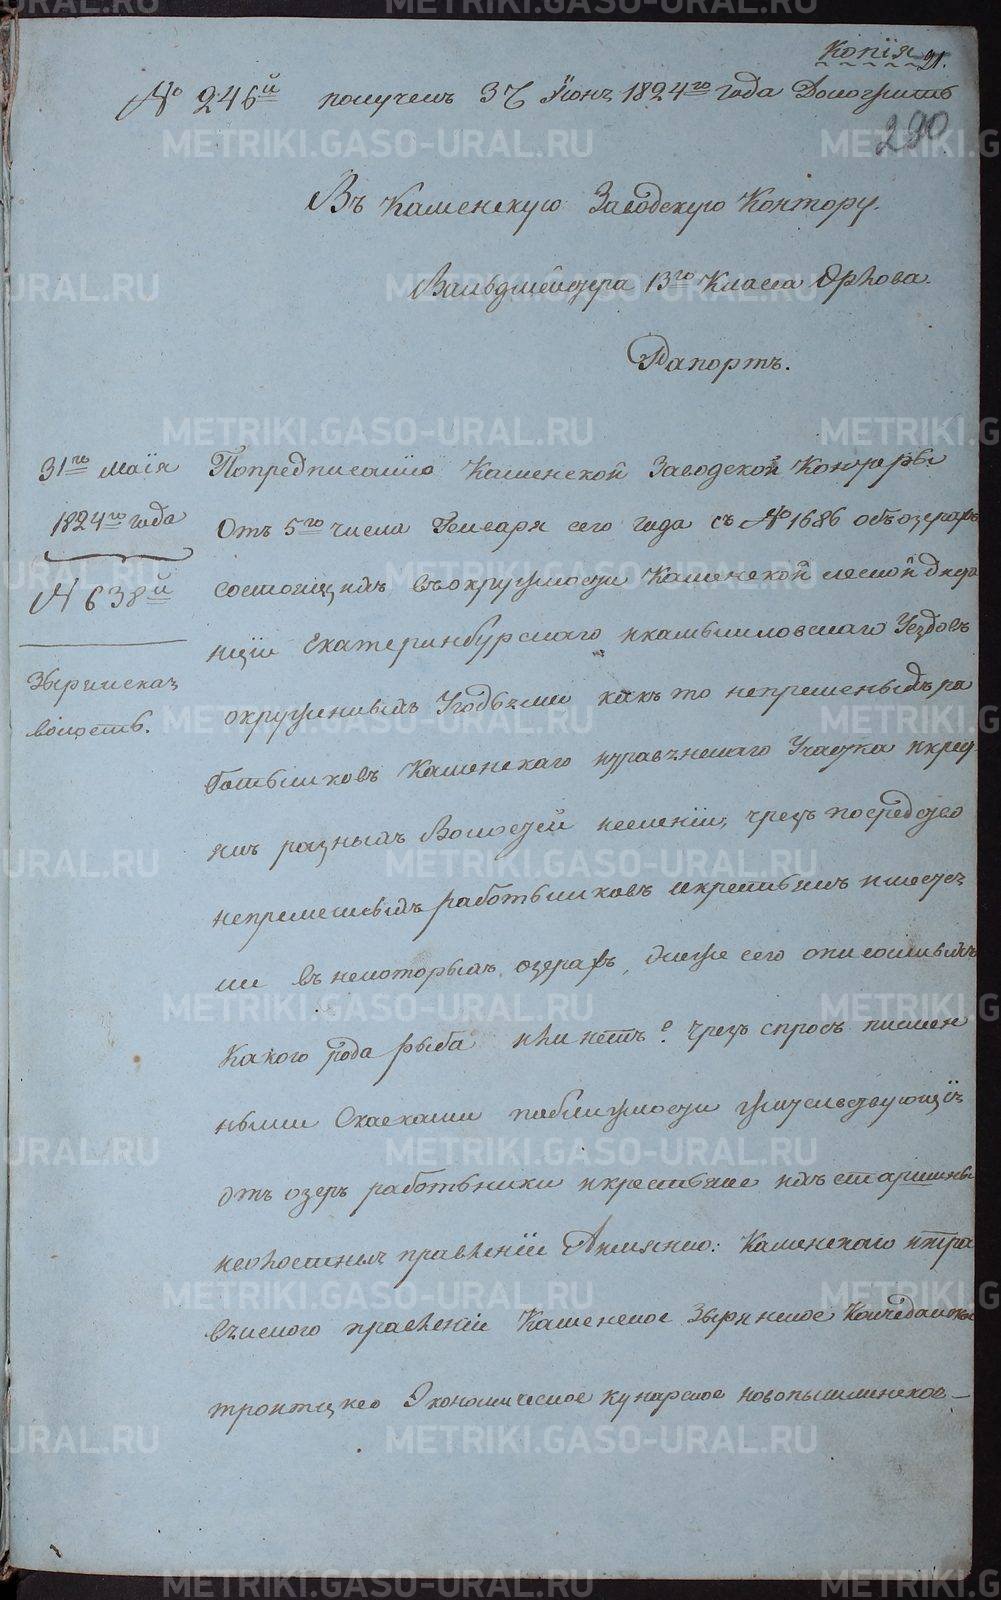 Копiя 21.
№ 246й получен 3го Июня 1824го года Доложить
290
Въ Каменскую Заводскую Контору.
Вальдмейстера 13го Класса Орлова.
Рапортъ.
31го маiя
1824го года
№ 638й
Зырянская
волость.
По предписанiю Каменской Заводской Конторы
Отъ 5го числа Генваря сего года съ № 1686 объ озерахъ
состоящихъ въ окружности Каменской лесной дистан
цiи Екатеринбурскаго и камышловскаго Уездовъ
окруженныхъ Угодьями какъ то непременныхъ ра
ботьников Каменскаго и травянскаго Участка и крес
янъ разныхъ Волостей неменiи, чрезъ посредство
непременныхъ работников и крестьянъ
въ некоторыхъ озерахъ, ниже сего описанныхъ
Какого рода рыба или нетъ? Чрезъ спросъ писмен
ными Сказками поблизности жительствующiе
отъ озеръ работьники и крестьяне ихъ старшины
волостных правленiи Каменскаго и тра
вянского правленiи Каменское Зырянское Колчеданское
троитцкео Экономическое кунарское новопышминское
METRIKI.GASO-URAL.RU